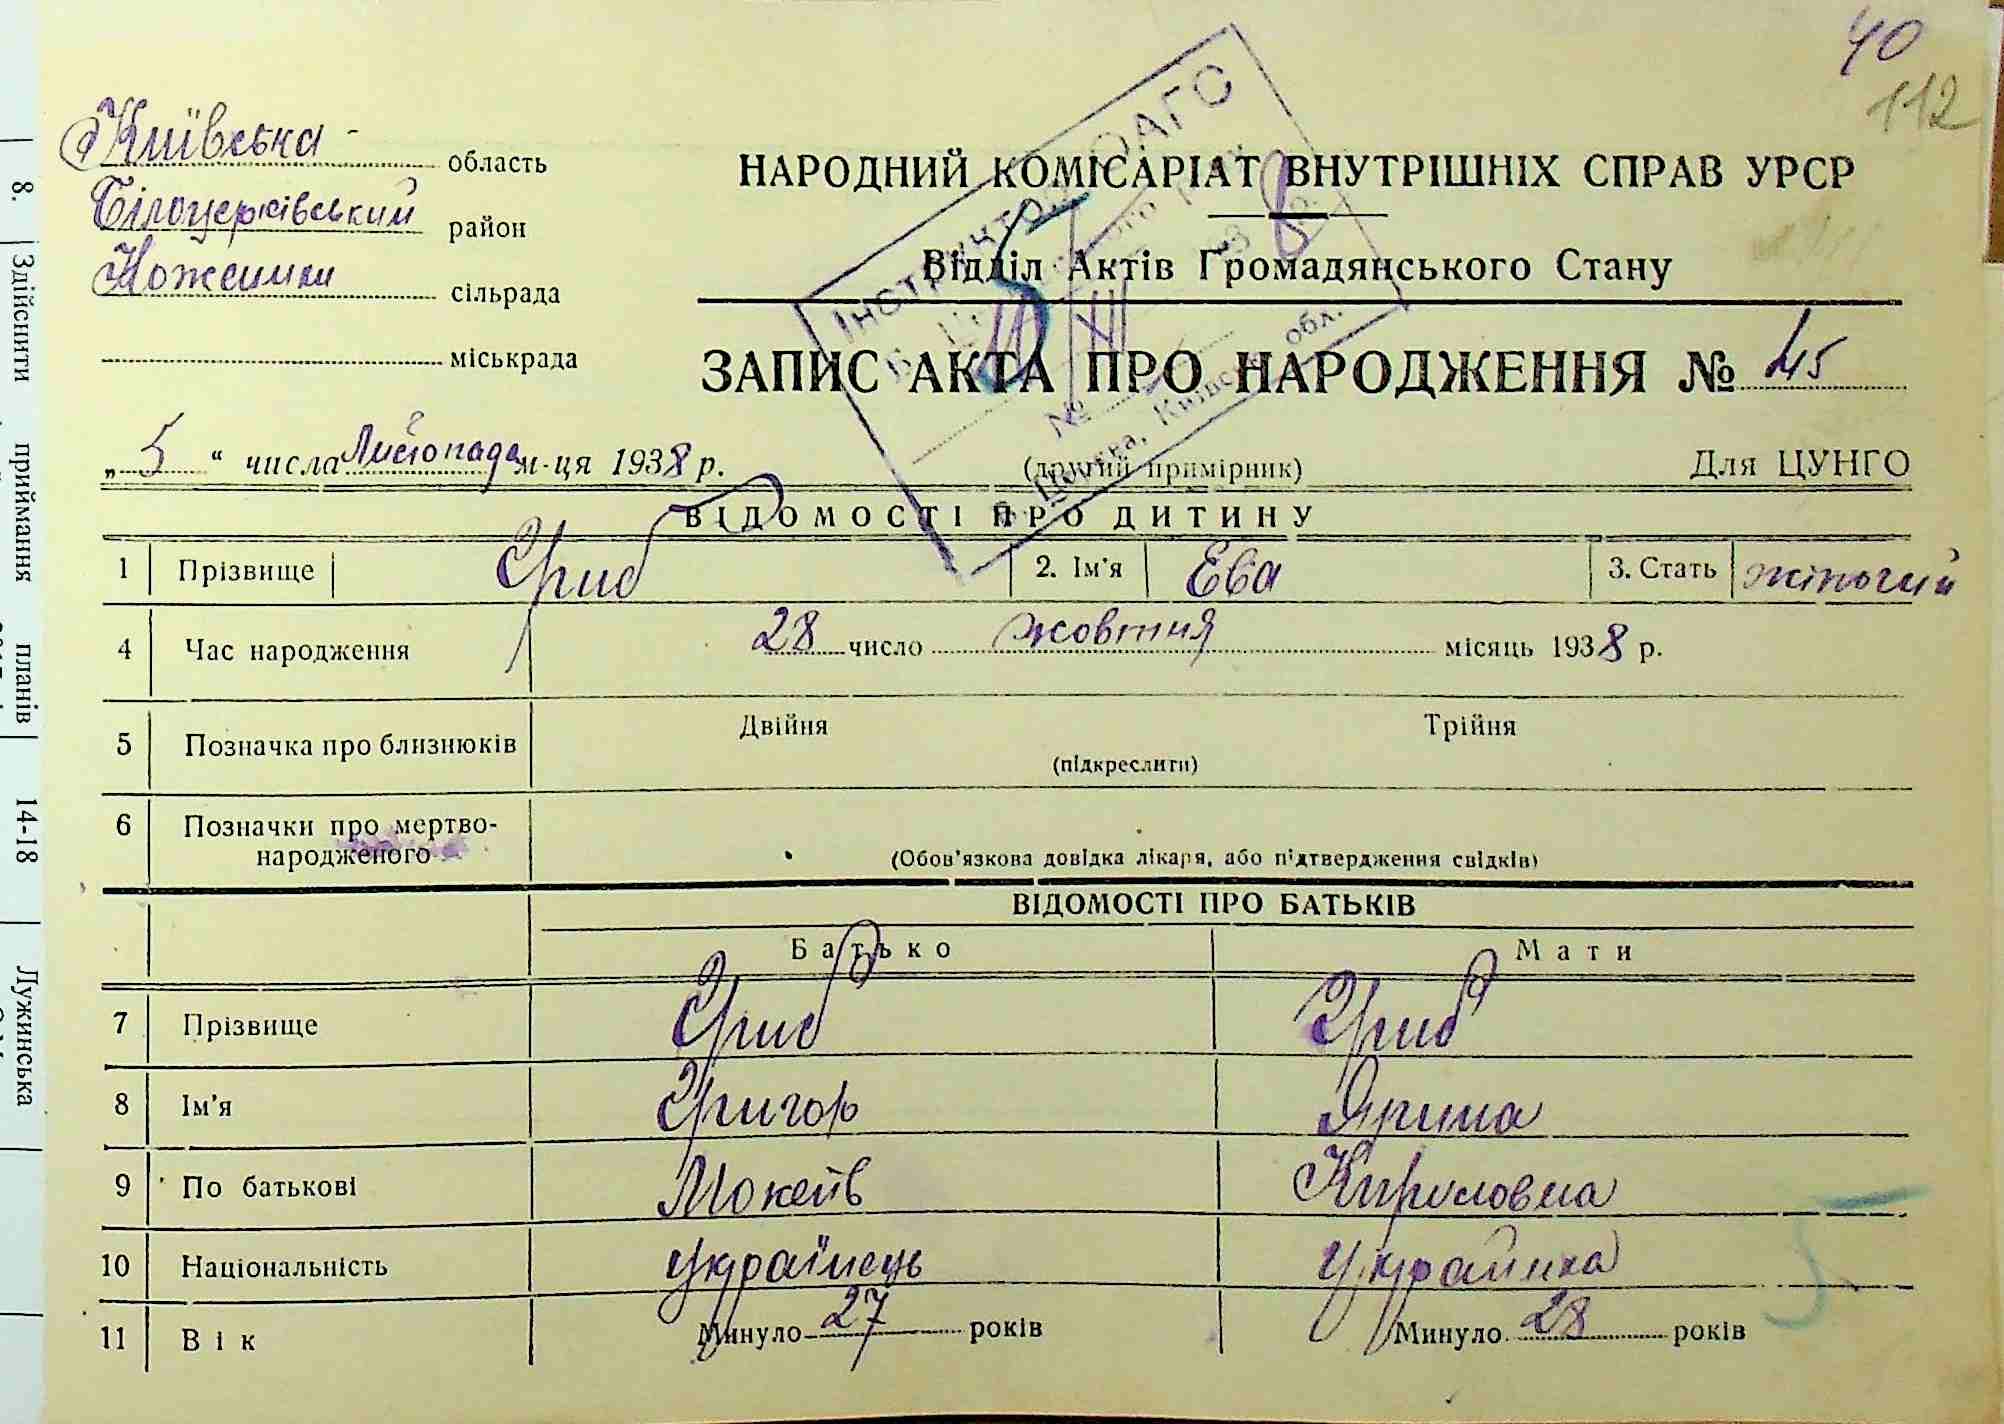 40
112
Київська область
Білоцерківський район
Кожешки сільрада
міськрада
НАРОДНИЙ КОМІСАРІАТ ВНУТРІШНІХ СПРАВ УРСР
Відділ Актів Громадянського Стану
ЗАПИС АКТА ПРО НАРОДЖЕННЯ № 45
„ 5 “ числа Листопада м-ця 1938 р.
(другий примірник)
Для ЦУНГО
Інструктор ОАГС
Церква, Київськ обл.
ВІДОМОСТІ ПРО ДИТИНУ
1 Прізвище Гриб 2. Ім'я Ева 3. Стать жіночий
4 Час народження 28 число жовтня місяць 1938 р.
5 Позначка про близнюків Двійня Трійня
(підкреслити)
6 Позначки про мертво-
народженого (Обов'язкова довідка лікаря, або підтвердження свідків)
ВІДОМОСТІ ПРО БАТЬКІВ
Батько Мати
7 Прізвище Гриб Гриб
8 Ім'я Григор Ярина
9 По батькові Мокеїв Кириловна
10 Національність Українець Українка
11 Вік Минуло 27 років Минуло 28 років
5
8.
Здійснити приймання планів
14-18
Лужинська